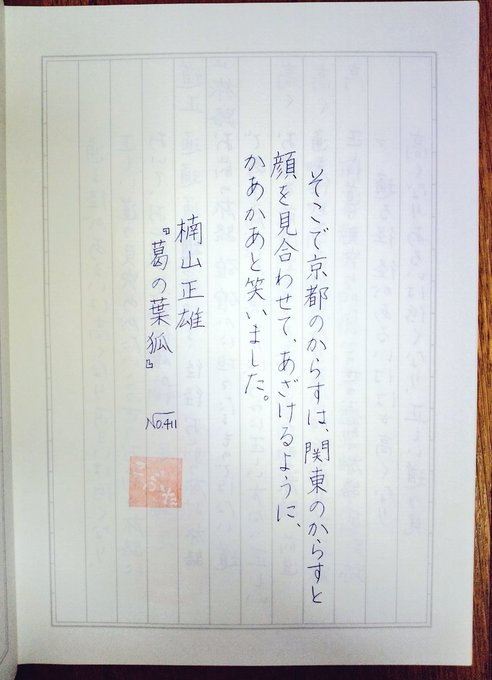 そこで京都のからすは、関東のからすと
顔を見合わせて、あざけるように、
かあかあと笑いました。
楠山正雄
『葛の葉狐』
No.411